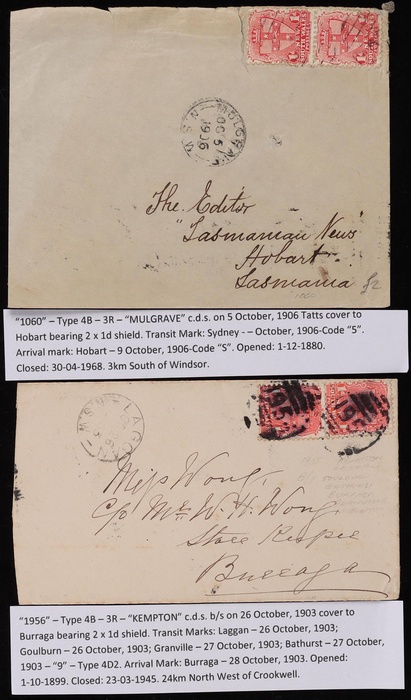 MULGRAVE
OC 5
1906
N.S.W
The Editor
"Tasmanian News"
Hobart
Tasmania
£2
"1060" – Type 4B – 3R – "MULGRAVE" c.d.s. on 5 October, 1906 Tatts cover to
Hobart bearing 2 x 1d shield. Transit Mark: Sydney - – October, 1906-Code "5".
Arrival mark: Hobart – 9 October, 1906-Code "S". Opened: 1-12-1880.
Closed: 30-04-1968. 3km South of Windsor.
LAGGAN
N.S.W
Miss Wong,
C/o Mr. W. H. Wong
Store Keeper
Burraga
"1956" – Type 4B – 3R – "KEMPTON" c.d.s. b/s on 26 October, 1903 cover to
Burraga bearing 2 x 1d shield. Transit Marks: Laggan – 26 October, 1903;
Goulburn – 26 October, 1903; Granville – 27 October, 1903; Bathurst – 27 October,
1903 – "9" – Type 4D2. Arrival Mark: Burraga – 28 October, 1903. Opened:
1-10-1899. Closed: 23-03-1945. 24km North West of Crookwell.